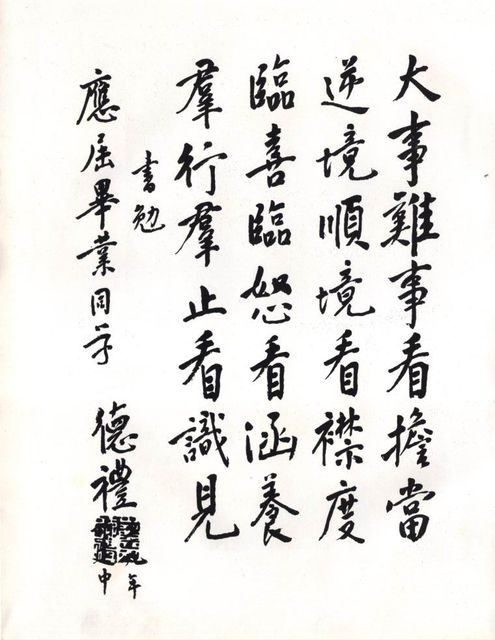 大事難事看擔當
逆境順境看襟度
臨喜臨怒看涵養
羣行羣止看識見
書勉
應屆畢業同学
德禮
年
中